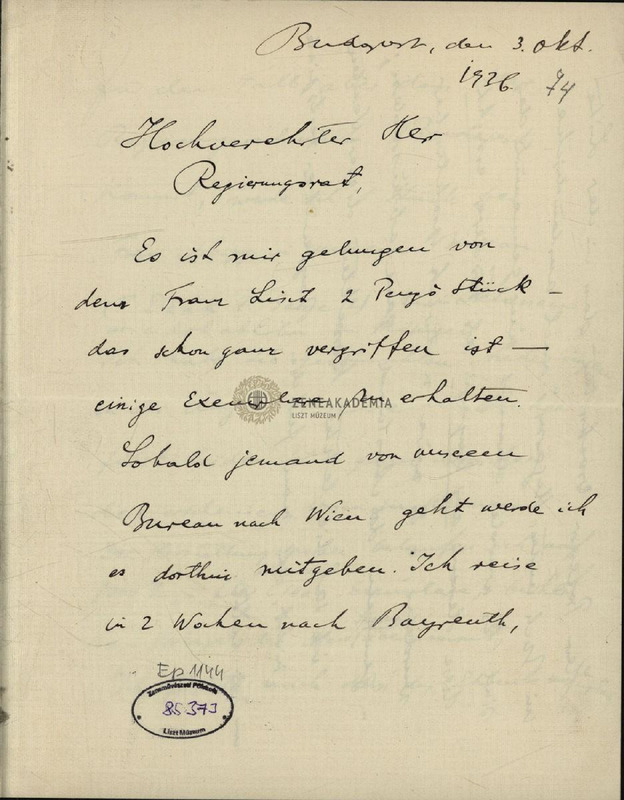 Budapest, den 3. Okt.
1936. 74
Hochverehrter Herr
Regierungsrat,
Es ist mir gelungen von
dem Franz Liszt 2 Pengö Stück –
das schon ganz vergriffen ist –
einige Exemplare zu erhalten.
ZENEAKADEMIA
LISZT MÚZEUM
Sobald jemand von unserem
Bureau nach Wien geht werde ich
es dorthin mitgeben. Ich reise
in 2 Wochen nach Bayreuth,
Ep 1144
Zeneművészeti Főiskola
85373
Liszt Múzeum